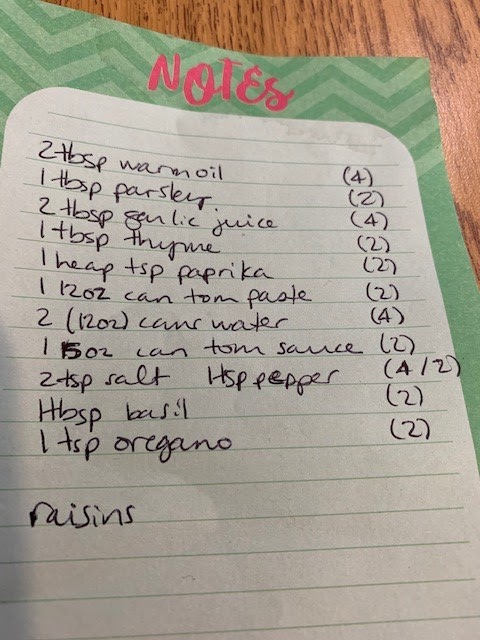 NOTES
2 tbsp warm oil (4)
1 tbsp parsley (2)
2 tbsp garlic juice (4)
1 tbsp thyme (2)
1 heap tsp paprika (2)
1 12oz can tom paste (2)
2 (12oz) cans water (4)
1 15oz can tom sauce (2)
2 tsp salt 1 tsp pepper (4/2)
1 tbsp basil (2)
1 tsp oregano (2)
raisins